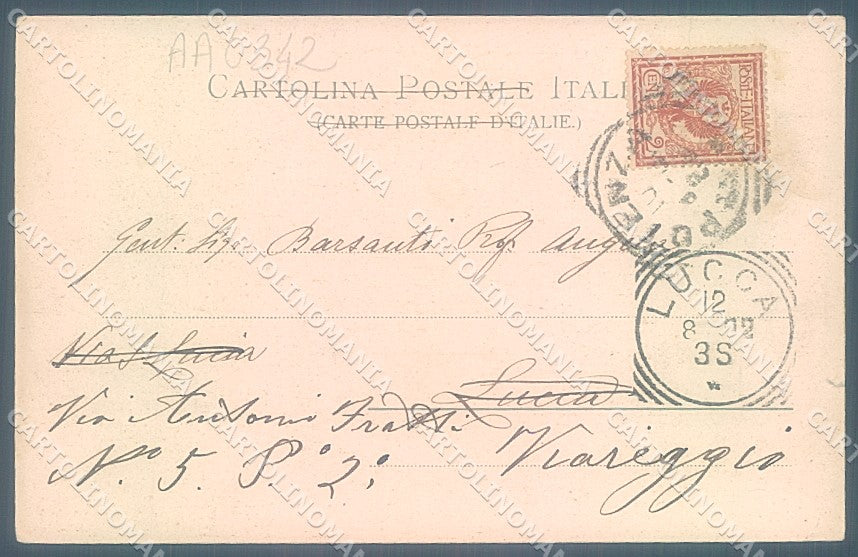 AA0342
CARTOLINA POSTALE ITALI
(CARTE POSTALE D'ITALIE.)
POSTE ITALIANE
2
POTENZA
Gent. Sig. Barsanti Prof. Ang
LUCCA
12
8 02
3S
Via S. Lucia
Lucca
Via Antonio Fratti
N.º 5. P.º 2.º Viareggio
CARTOLINOMANIA